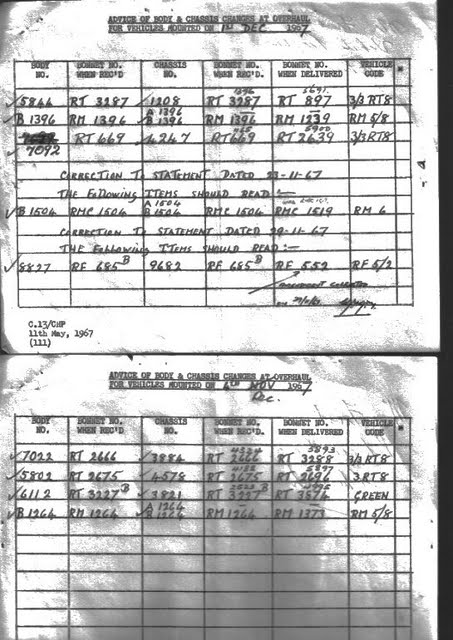 ADVICE OF BODY & CHASSIS CHANGES AT OVERHAUL
FOR VEHICLES MOUNTED ON 1st DEC 1967
BODY NO. BONNET NO. WHEN REC'D CHASSIS NO. BONNET NO. WHEN REC'D. BONNET NO. WHEN DELIVERED VEHICLE CODE
1396 5691
5844 RT 3287 1208 RT 3287 RT 897 3/3 RT8
A 1396
B 1396 RM 1396 B 1396 RM 1396 RM 1239 RM 5/8
5900
RT 669 4247 RT 669 RT 2639 3/3 RT8
7092
CORRECTION TO STATEMENT DATED 23-11-67
THE FOLLOWING ITEMS SHOULD READ:-
A 1504
B 1504 RMC 1504 B 1504 RMC 1504 RMC 1519 RM 6
CORRECTION TO STATEMENT DATED 29-11-67
THE FOLLOWING ITEMS SHOULD READ:-
8827 RF 685 B 9682 RF 685 B RF 552 RF 5/2
C.13/CHP
11th May, 1967
(111)
ADVICE OF BODY & CHASSIS CHANGES AT OVERHAUL
FOR VEHICLES MOUNTED ON 6th NOV 1967
Dec.
BODY NO. BONNET NO. WHEN REC'D CHASSIS NO. BONNET NO. WHEN REC'D. BONNET NO. WHEN DELIVERED VEHICLE CODE
5893
7022 RT 2666 3884 RT 2666 RT 3288 3/3 RT8
5897
5802 RT 2675 4578 RT 2675 RT 2696 3RT8
6112 RT 3227 B 3821 RT 3227 B RT 3574 GREEN
A 1264
B 1264 RM 1264 B 1264 RM 1264 RM 1373 RM 5/8